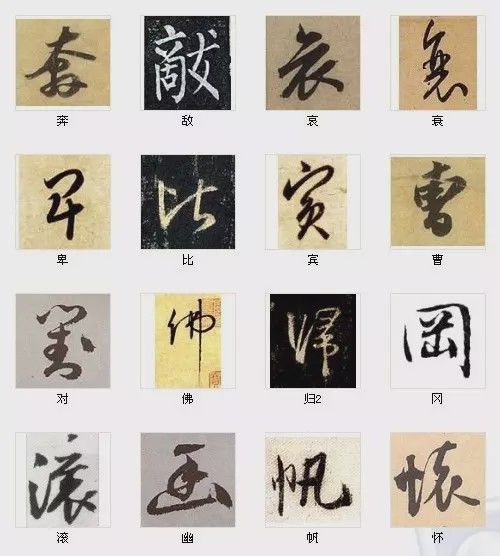 奔 敌 哀 衰
卑 比 宾 曹
对 佛 归2 冈
滚 幽 帆 怀